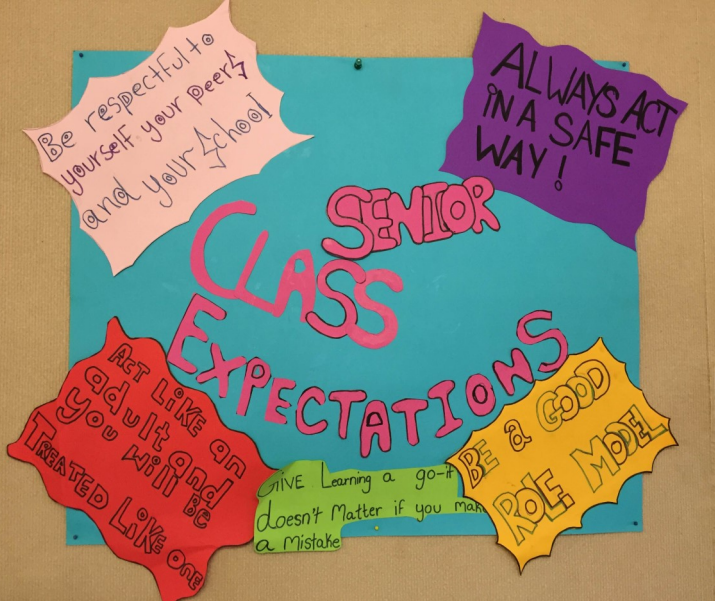 Be respectful to
yourself your peers
and your School
ALWAYS ACT
iN A SAFE
WAY!
SENIOR
CLASS
EXPECTATIONS
ACT LiKE an
adult and
you will BE
TREATED LiKE ONE
GIVE Learning a go-it
doesn't Matter if you make
a Mistake
BE a GOOD
ROLE MODEL